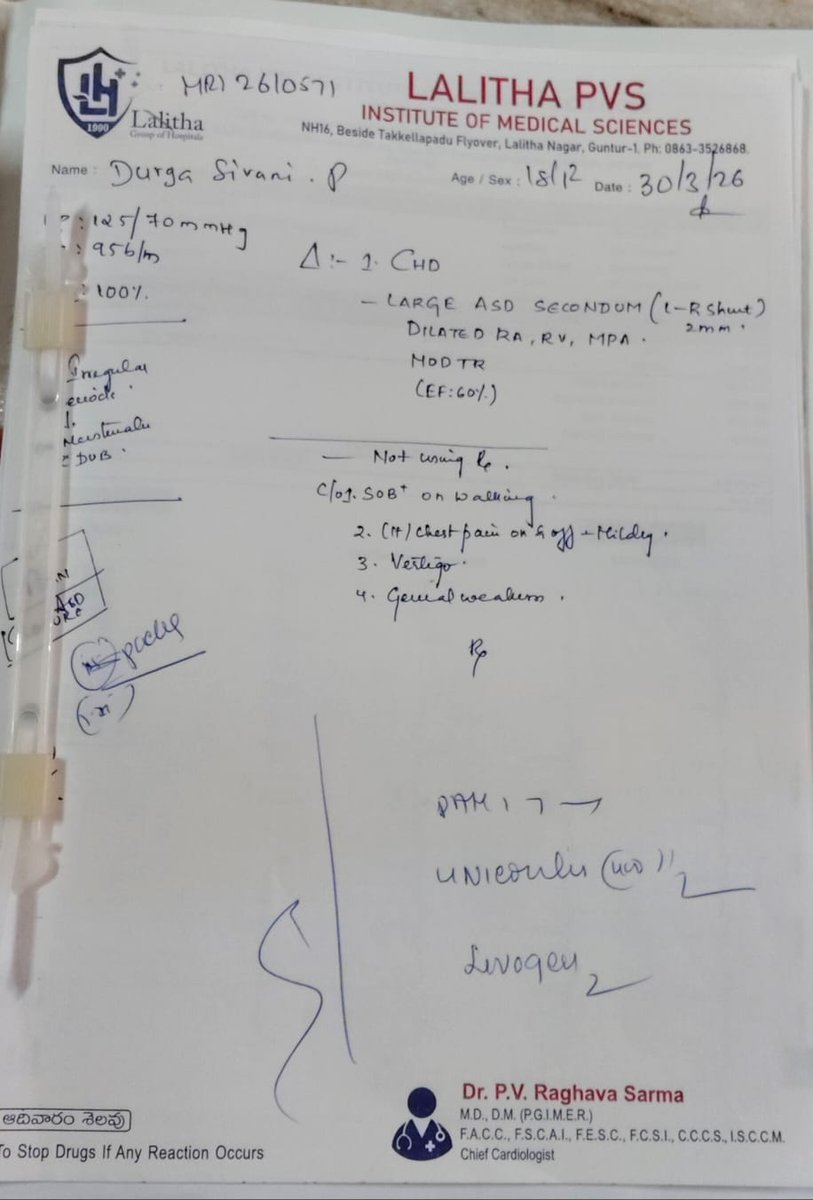 MR) 2610571
LALITHA PVS
INSTITUTE OF MEDICAL SCIENCES
NH16, Beside Takkellapadu Flyover, Lalitha Nagar, Guntur-1. Ph: 0863-3526868.
LH
1990
Lalitha
Group of Hospitals
Name : Durga Sivani . P
Age / Sex : 18/
Date : 30/3/26
: 125/70mmHg
: 95b/m
: 100%.
Δ:- 1. CHD
- LARGE ASD SECONDUM (L-R Shunt)
2mm.
DILATED RA, RV, MPA.
MOD TR
(EF:60%)
Irregular
DUB.
- Not using Rx.
C/o 1. SOB+ on walking.
2. (H) chest pain on & off - Mildly.
3. Vertigo.
4. General weakness.
ASD
Rx
UNICONLIN
Livogen
ఆదివారం శెలవు
To Stop Drugs If Any Reaction Occurs
Dr. P.V. Raghava Sarma
M.D., D.M. (P.G.I.M.E.R.)
F.A.C.C., F.S.C.A.I., F.E.S.C., F.C.S.I., C.C.C.S., I.S.C.C.M.
Chief Cardiologist